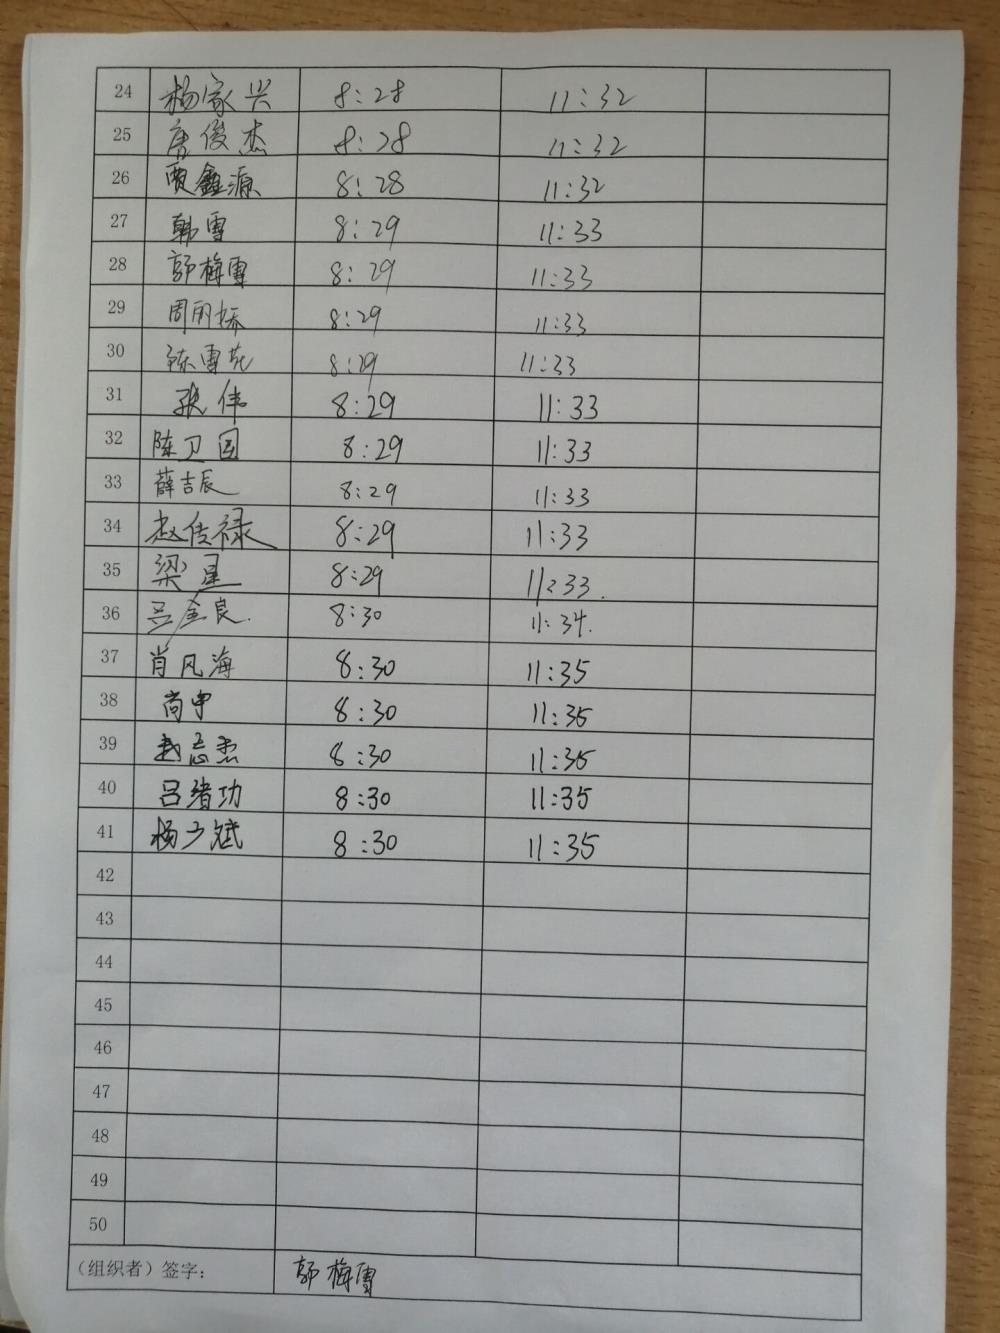 24 杨家兴 8:28 11:32
25 唐俊杰 8:28 11:32
26 贾鑫源 8:28 11:32
27 韩雪 8:29 11:33
28 郭梅雪 8:29 11:33
29 周丽娇 8:29 11:33
30 陈雪花 8:29 11:33
31 张伟 8:29 11:33
32 陈卫国 8:29 11:33
33 薛吉辰 8:29 11:33
34 赵传禄 8:29 11:33
35 梁星 8:29 11:33.
36 吕金良. 8:30 11:34.
37 肖凤海 8:30 11:35
38 尚中 8:30 11:35
39 赵志杰 8:30 11:35
40 吕绪功 8:30 11:35
41 杨少斌 8:30 11:35
42
43
44
45
46
47
48
49
50
(组织者)签字: 郭梅雪